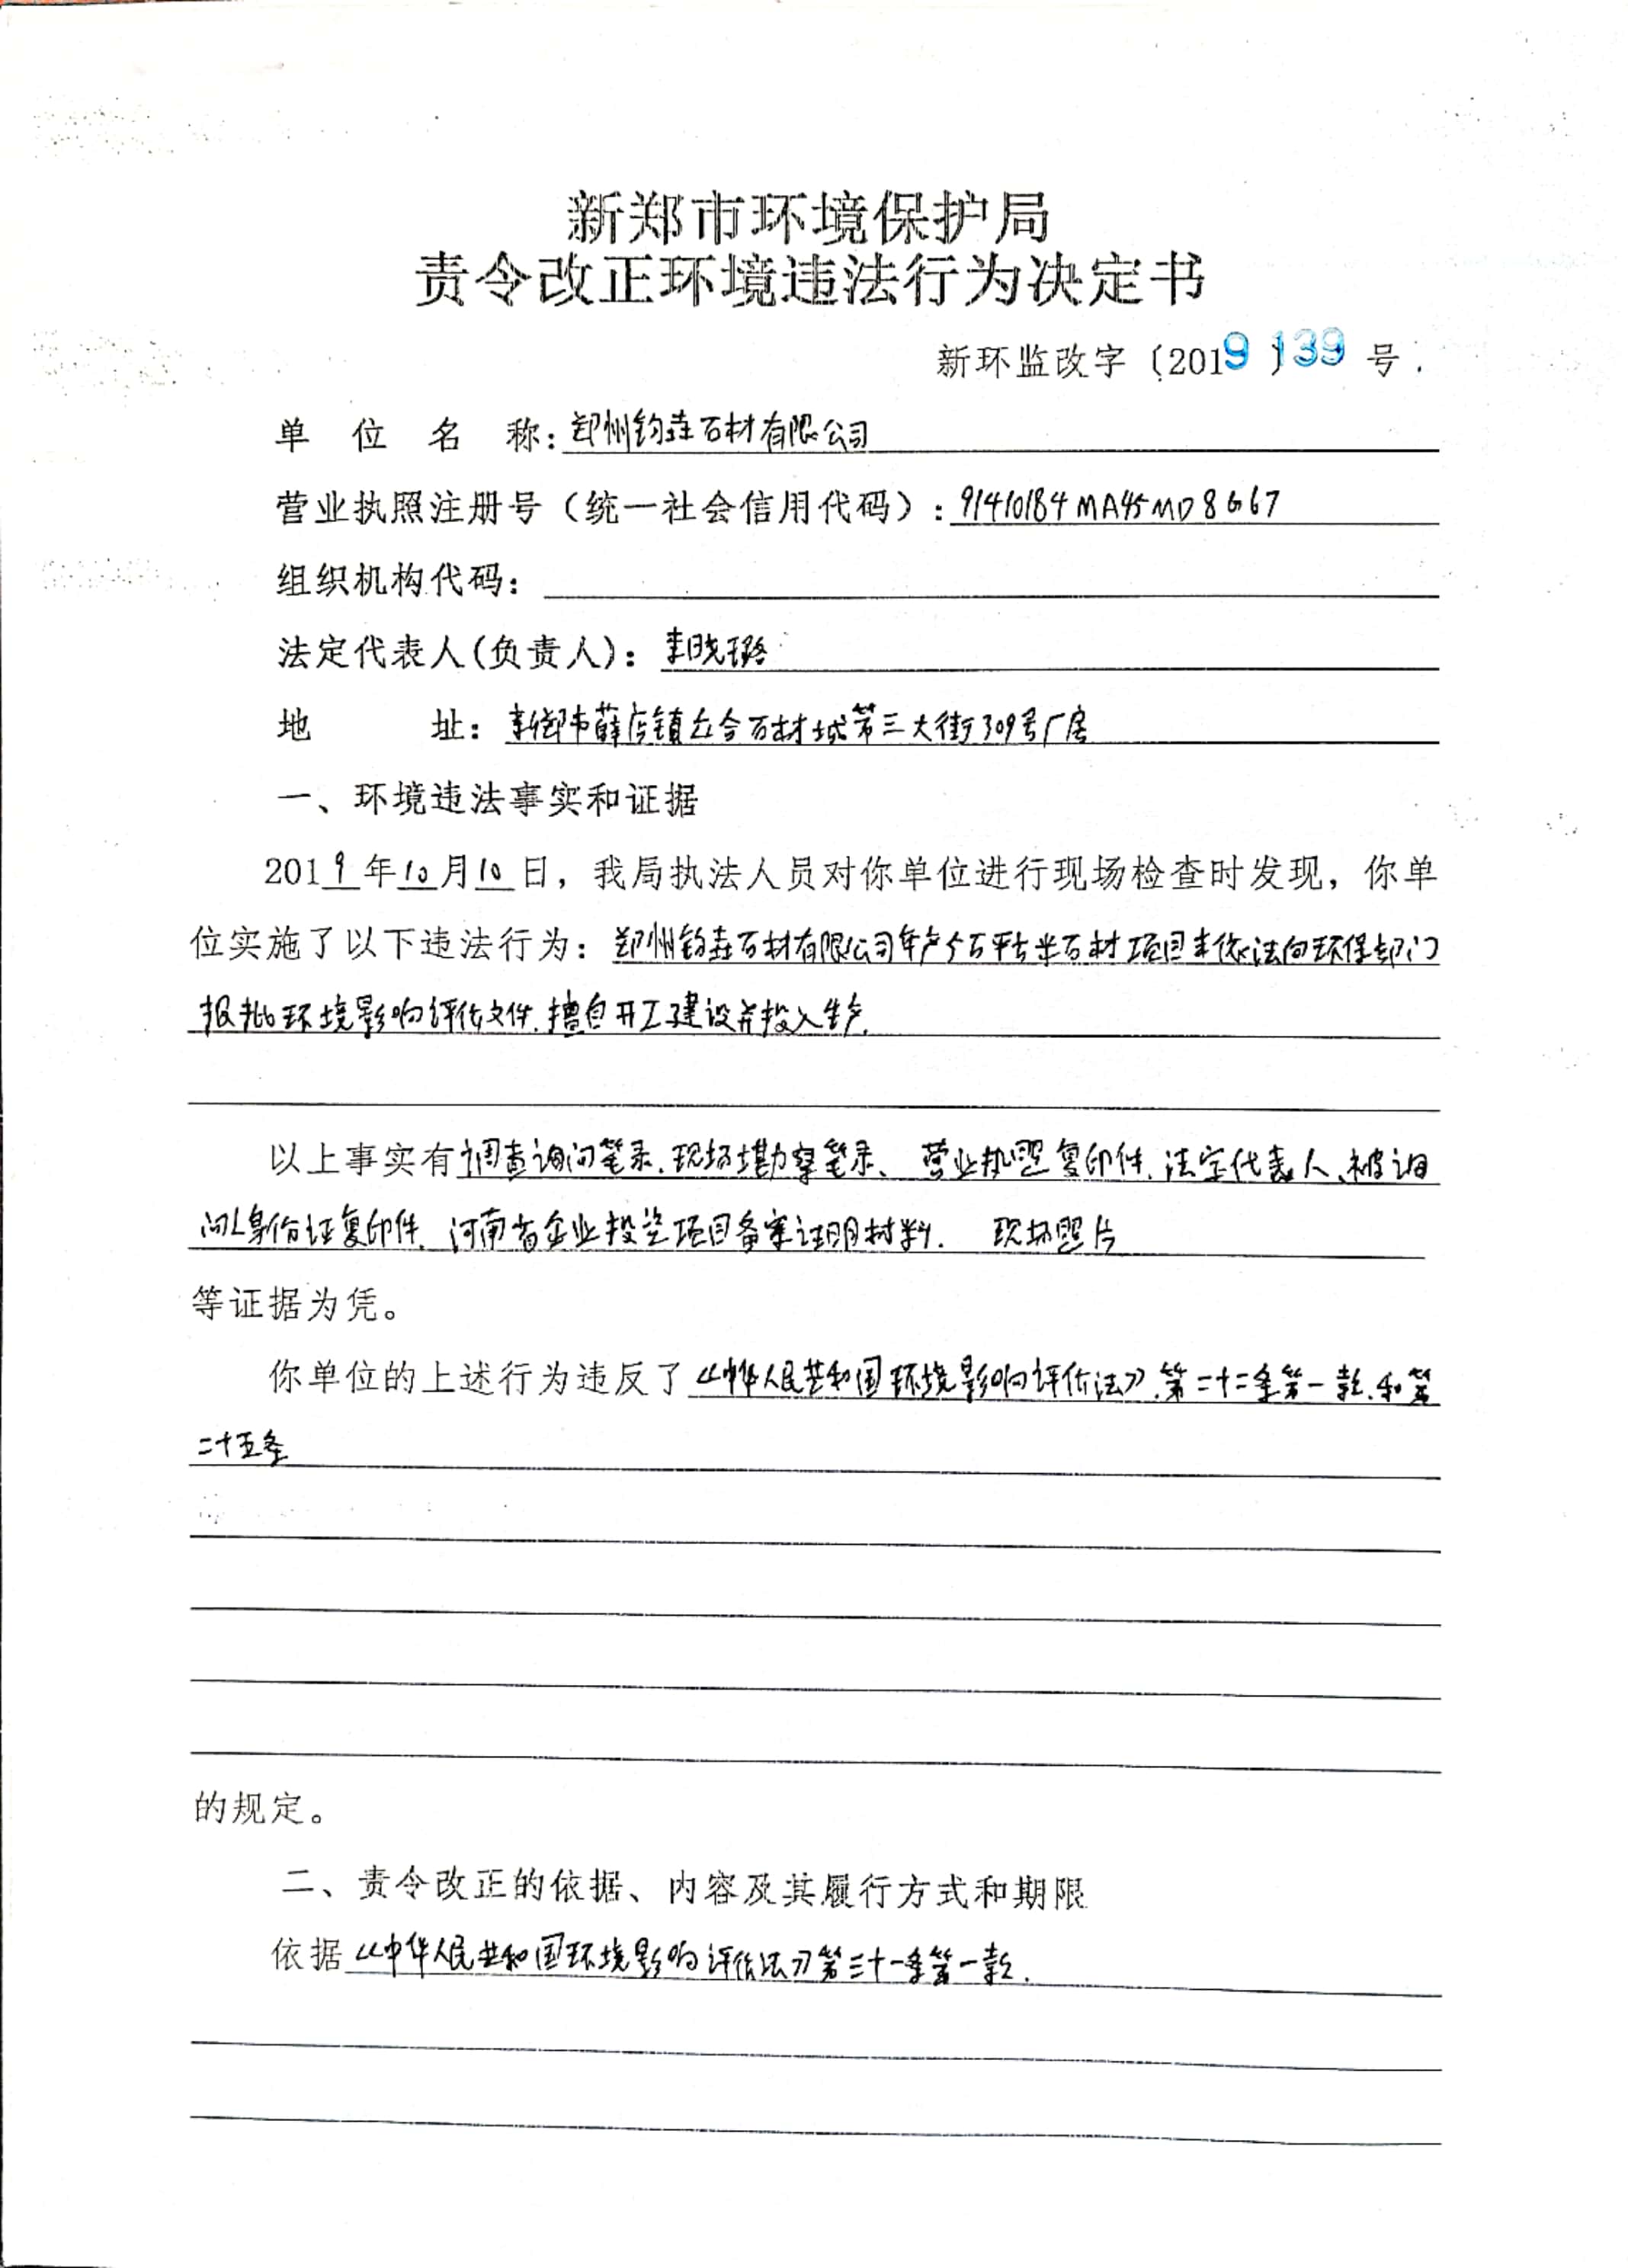 新郑市环境保护局
责令改正环境违法行为决定书
新环监改字〔2019〕139号
单位名称：郑州钧垚石材有限公司
营业执照注册号（统一社会信用代码）：91410184MA45MD8G67
组织机构代码：
法定代表人(负责人)：李晓璐
地址：新郑市薛店镇众合石材城第三大街309号厂房
一、环境违法事实和证据
2019年10月10日，我局执法人员对你单位进行现场检查时发现，你单
位实施了以下违法行为：郑州钧垚石材有限公司年产5万平方米石材项目未依法向环保部门
报批环境影响评价文件.擅自开工建设并投入生产.
以上事实有调查询问笔录.现场勘察笔录、营业执照复印件.法定代表人、被询
问人身份证复印件.河南省企业投资项目备案证明材料.现场照片
等证据为凭。
你单位的上述行为违反了《中华人民共和国环境影响评价法》.第二十二条第一款.和第
二十五条
的规定。
二、责令改正的依据、内容及其履行方式和期限
依据《中华人民共和国环境影响评价法》第三十一条第一款.